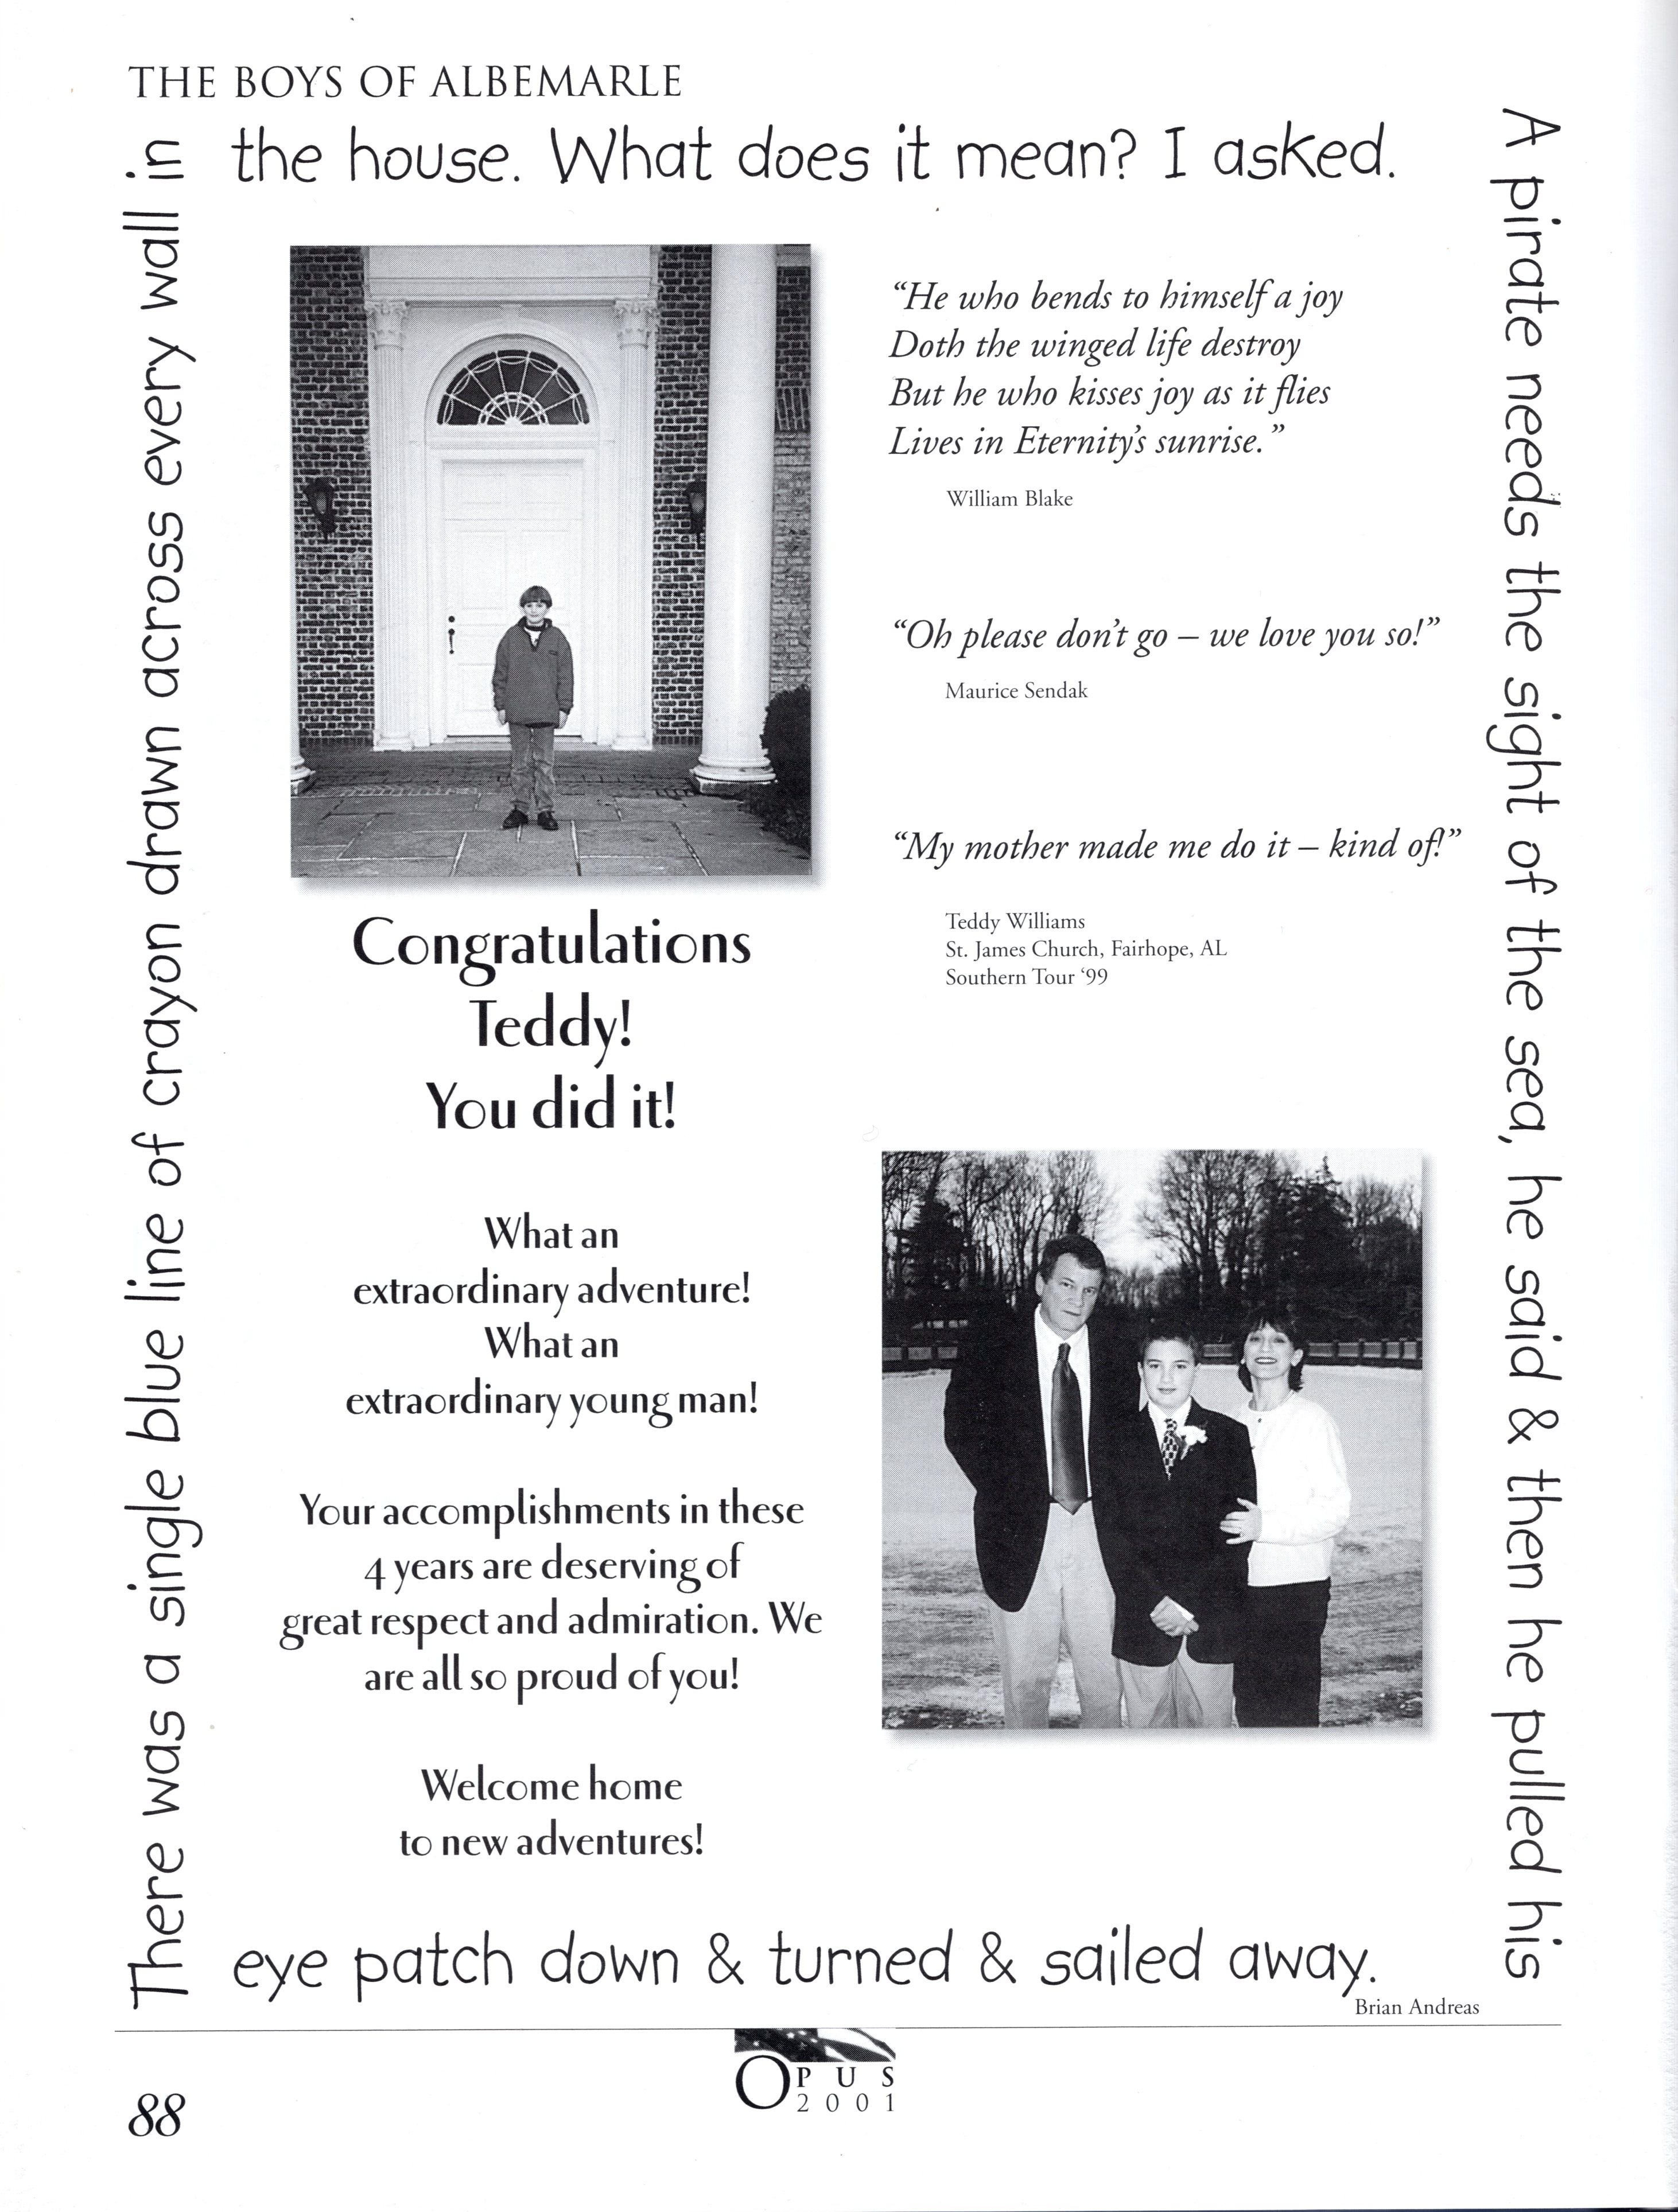 THE BOYS OF ALBEMARLE
There was a single blue line of crayon drawn across every wall in
the house. What does it mean? I asked.
A pirate needs the sight of the sea, he said & then he pulled his
eye patch down & turned & sailed away.
Brian Andreas
“He who bends to himself a joy
Doth the winged life destroy
But he who kisses joy as it flies
Lives in Eternity’s sunrise.”
William Blake
“Oh please don’t go – we love you so!”
Maurice Sendak
“My mother made me do it – kind of!”
Teddy Williams
St. James Church, Fairhope, AL
Southern Tour ‘99
Congratulations
Teddy!
You did it!
What an
extraordinary adventure!
What an
extraordinary young man!
Your accomplishments in these
4 years are deserving of
great respect and admiration. We
are all so proud of you!
Welcome home
to new adventures!
OPUS
2001
88